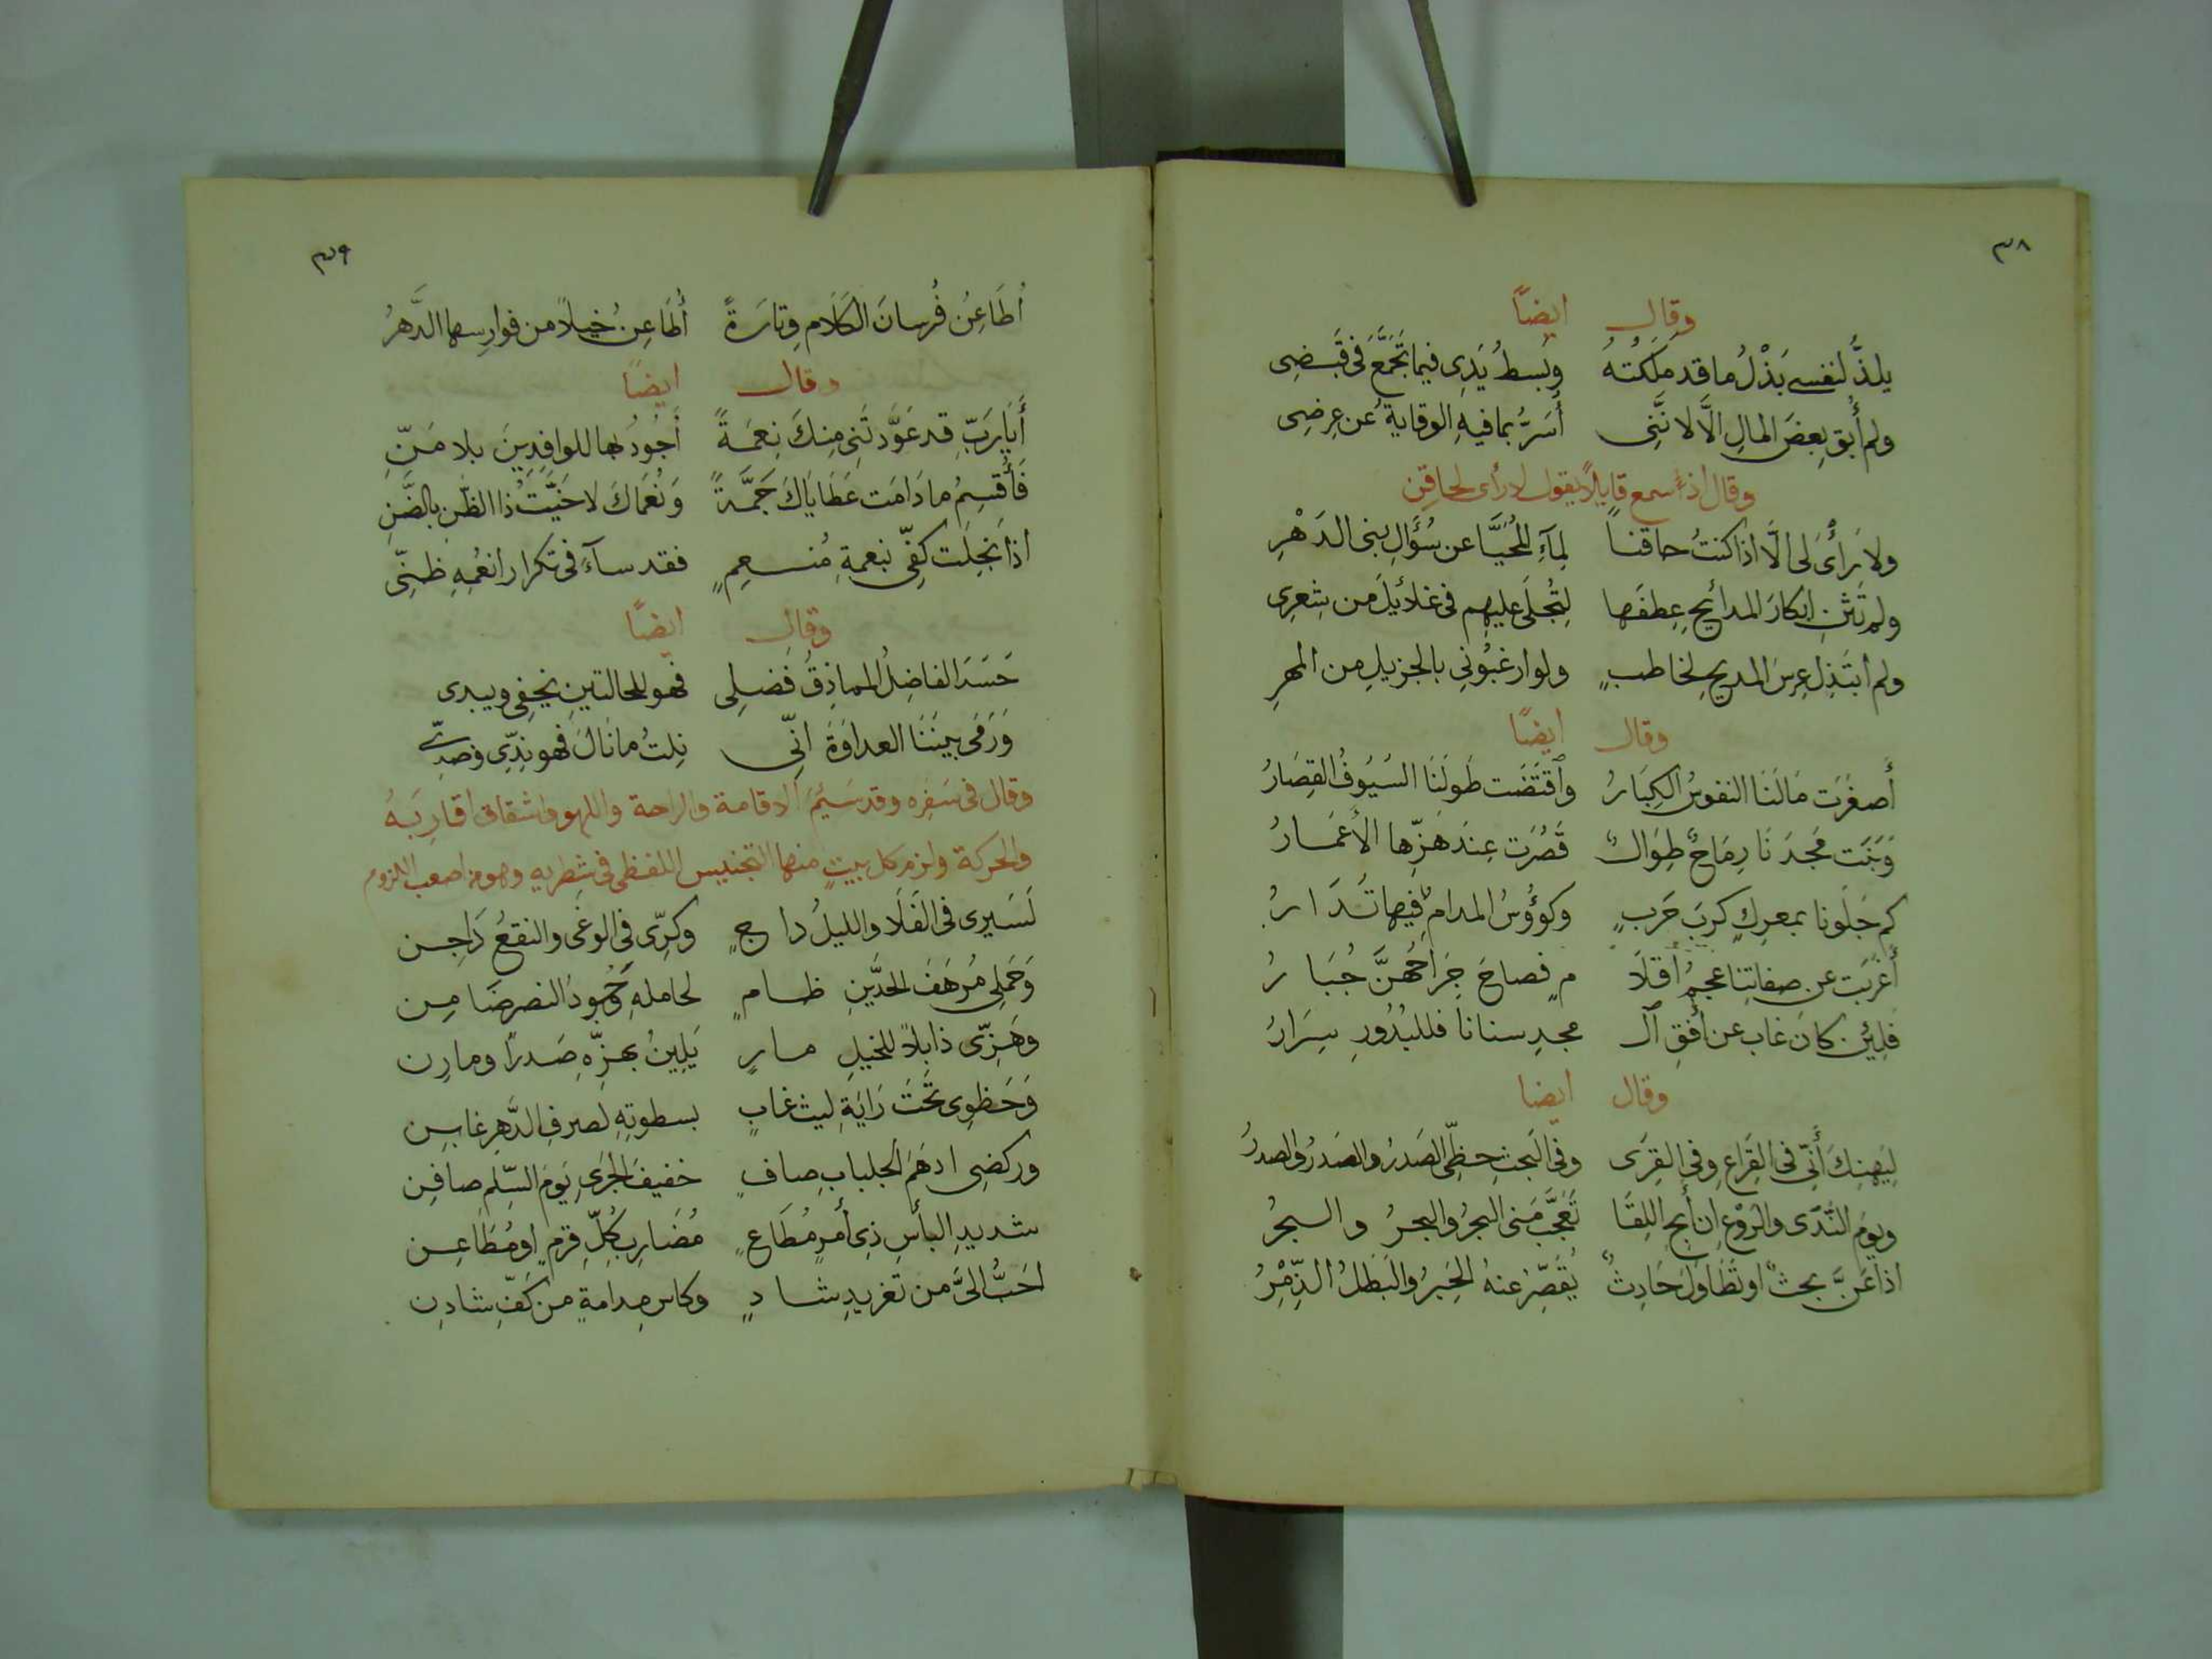 ٣٨
وقال ايضًا
يلذُّ لنفسى بَذْلُ ما قد ملكتهُ وبسطُ يَدِى فيما تجَمَّعَ فى قَبضِى
ولم أُبقِ بعضَ المالِ الَّا لانَّنِى أُسَرُّ بما فيهِ الوقايةُ عن عِرضِى
وقال اذ سمع قايلاً يقول لا رأى لحاقِن
ولا رَأْىَ لى الَّا اذا كنتُ حاقنا لِمآءِ المُحيَّا عن سُؤَالِ بنى الدَهْرِ
ولم تَثنِ ابكارَ المدائحِ عِطفَها لِتُجلَى عليهِم فى غلائيلَ من شِعرِى
ولم أبتَذِل عِرسَ المديحِ لخاطبٍ ولو ارغبُونِي بالجزيلِ من المهرِ
وقال ايضًا
أَصغَرَت مَالَنَا النفوسُ الكِبَارُ وٱقتَضَت طَولَنَا السُيُوفُ القِصَارُ
وَبَنَت مَجدَنَا رِمَاحٌ طِوَالٌ قَصُرَت عِندَ هَزِّها الأَعمَارُ
كم جَلَونا بمعركِ كربَ حَربٍ وكوُؤُسُ المدامِ فِيها تُدَارُ
أَعرَبَت عن صفاتِنا عجمُ أَقلَا مٍ فصاحَ جِرَاحُهنَّ جُبَارُ
فلِئِن كانَ غاب عن أُفقِ آل مجدِ سنانا فللبُدُورِ سِرَارُ
وقال ايضا
لِيَهنِكَ أَنِّى فى القِرَاعِ وفى القِرَى وفى البَحثِ حظِّى الصَدرُ والصَدرُ والصدرُ
ويومُ النَّدَى والرَوْعِ ان أَبحِ اللِقَا تَعَجَّبَ مَنى البحرُ والبحرُ والبحرُ
اذا عَنَّ بحثٌ او تَطَاوَلَ حَادِثٌ يُقَصِّرُ عنهُ الحِبرُ والبَطَلُ الذِّمْرُ
٣٩
اُطَاعِنُ فُرسانَ الكَلَامِ وتارَةً أُطَاعِنُ خيلاً من فوارِسها الدَّهرُ
وقال ايضًا
أَيَا رَبِّ قد عَوَّدتَنِى مِنكَ نِعمَةً أَجُودُ بها للوافِدِينَ بلا مَنِّ
فَأُقسِمُ ما دَامَت عَطَايَاكَ جَمَّةً وَنُعمَاكَ لا خَيَّبتُ ذا الظَنِ بالضَنِ
اذا بَخِلَت كفِّى بنعمةِ مُنعِمٍ فقد سآءَ فى تكرار انعُمِهِ ظنِّى
وقال ايضًا
حَسَدَ الفاضِلُ المماذِقُ فَضلِى فهو للحالتينِ يخفِى ويبدى
وَرَمَى بينَنَا العداوَةَ انِّى نِلتُ ما نَالَ فهو نِدِّى وضدِّى
وقال فى سَفرِه وقد سَئِمَ الاقامة والراحة واللهو واشتقاق أقارِبَهُ
والحركة ولزم كل بيتٍ منها التجنيس اللفظى فى شطريه وهو من اصعب اللزوم
لَسَيرِى فى الفَلَا والليلُ داجٍ وكرِّى فى الوغَى والنقعُ دَاجِن
وَحَملِى مُرهَفَ الحدَّينِ ظامٍ لحاملهِ وُجُودُ النصرِ ضَامِن
وهَزِّى ذابلاً للخيلِ مارٍ يَلِينُ بهزِّهِ صَدرًا ومارِن
وَحَظوِى تَحتَ رَايَةِ ليثِ غابٍ بسطوتِهِ لصرفِ الدَّهرِ غابِن
وركضِى ادهَمَ الجلبابِ صافٍ خفيفَ الجرىِ يَومَ السِّلمِ صافِن
شديدِ البأسِ ذِى أَمرٍ مُطَاعٍ مُضَارِبِ كُلِّ قِرمٍ او مُطَاعِن
احَبُّ الىَّ من تغرِيدِ شادٍ وكاسِ مدامةٍ من كَفِّ شادِن